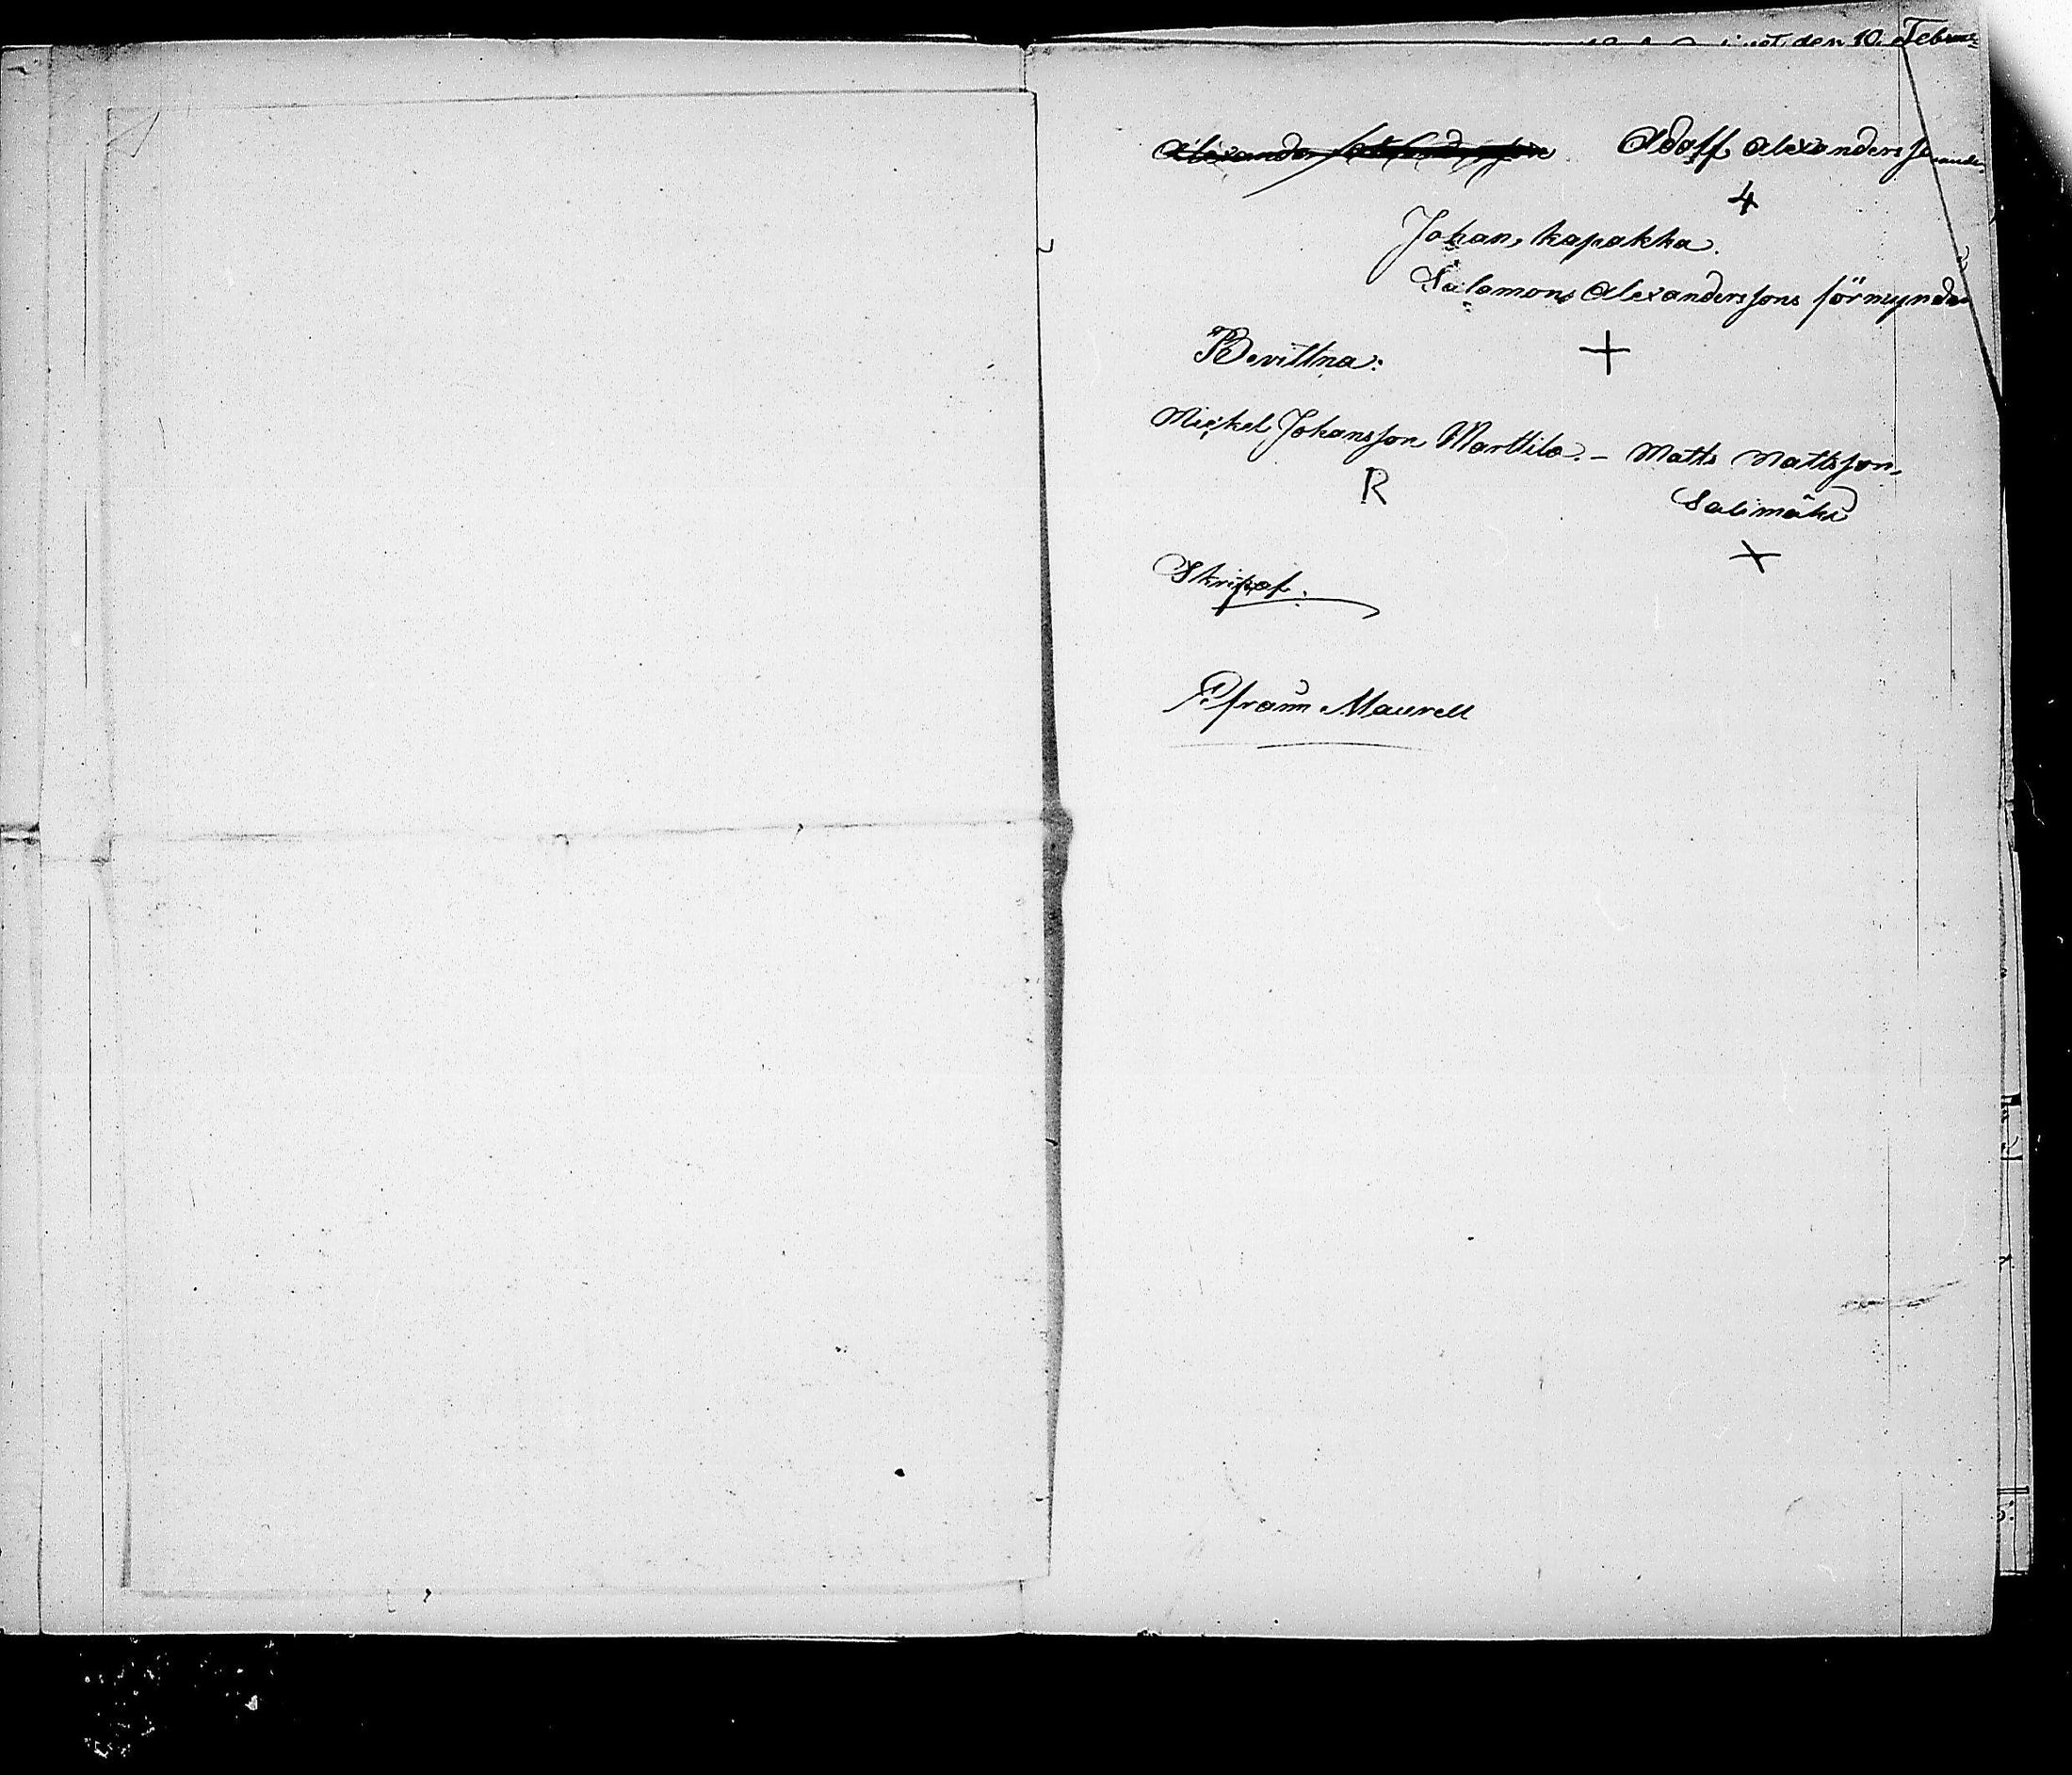 den 10. Febru
Alexander Adolff Alexanders
4
Johan, kapakka.
Salomons Alexanderssons förmyndar
Bevittna: +
Mickel Johansson Marttila. – Matts Mattsson,
R
Salimäki
X
Skript af.
Efraim Maurell